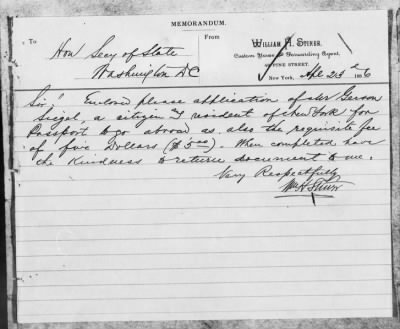 MEMORANDUM.
To From
Hon Secy of State WILLIAM H. STINER,
Custom House and Forwarding Agent,
Washington DC PINE STREET.
New York, Apl 23d 1886
Sir! Enclosed please application of Mr Gerson
Siegel, a citizen and resident of New York for
Passport to go abroad as also the requisite fee
of five Dollars ($5.00). When completed have
the kindness to return document to me.
Very Respectfully
Wm H Stiner